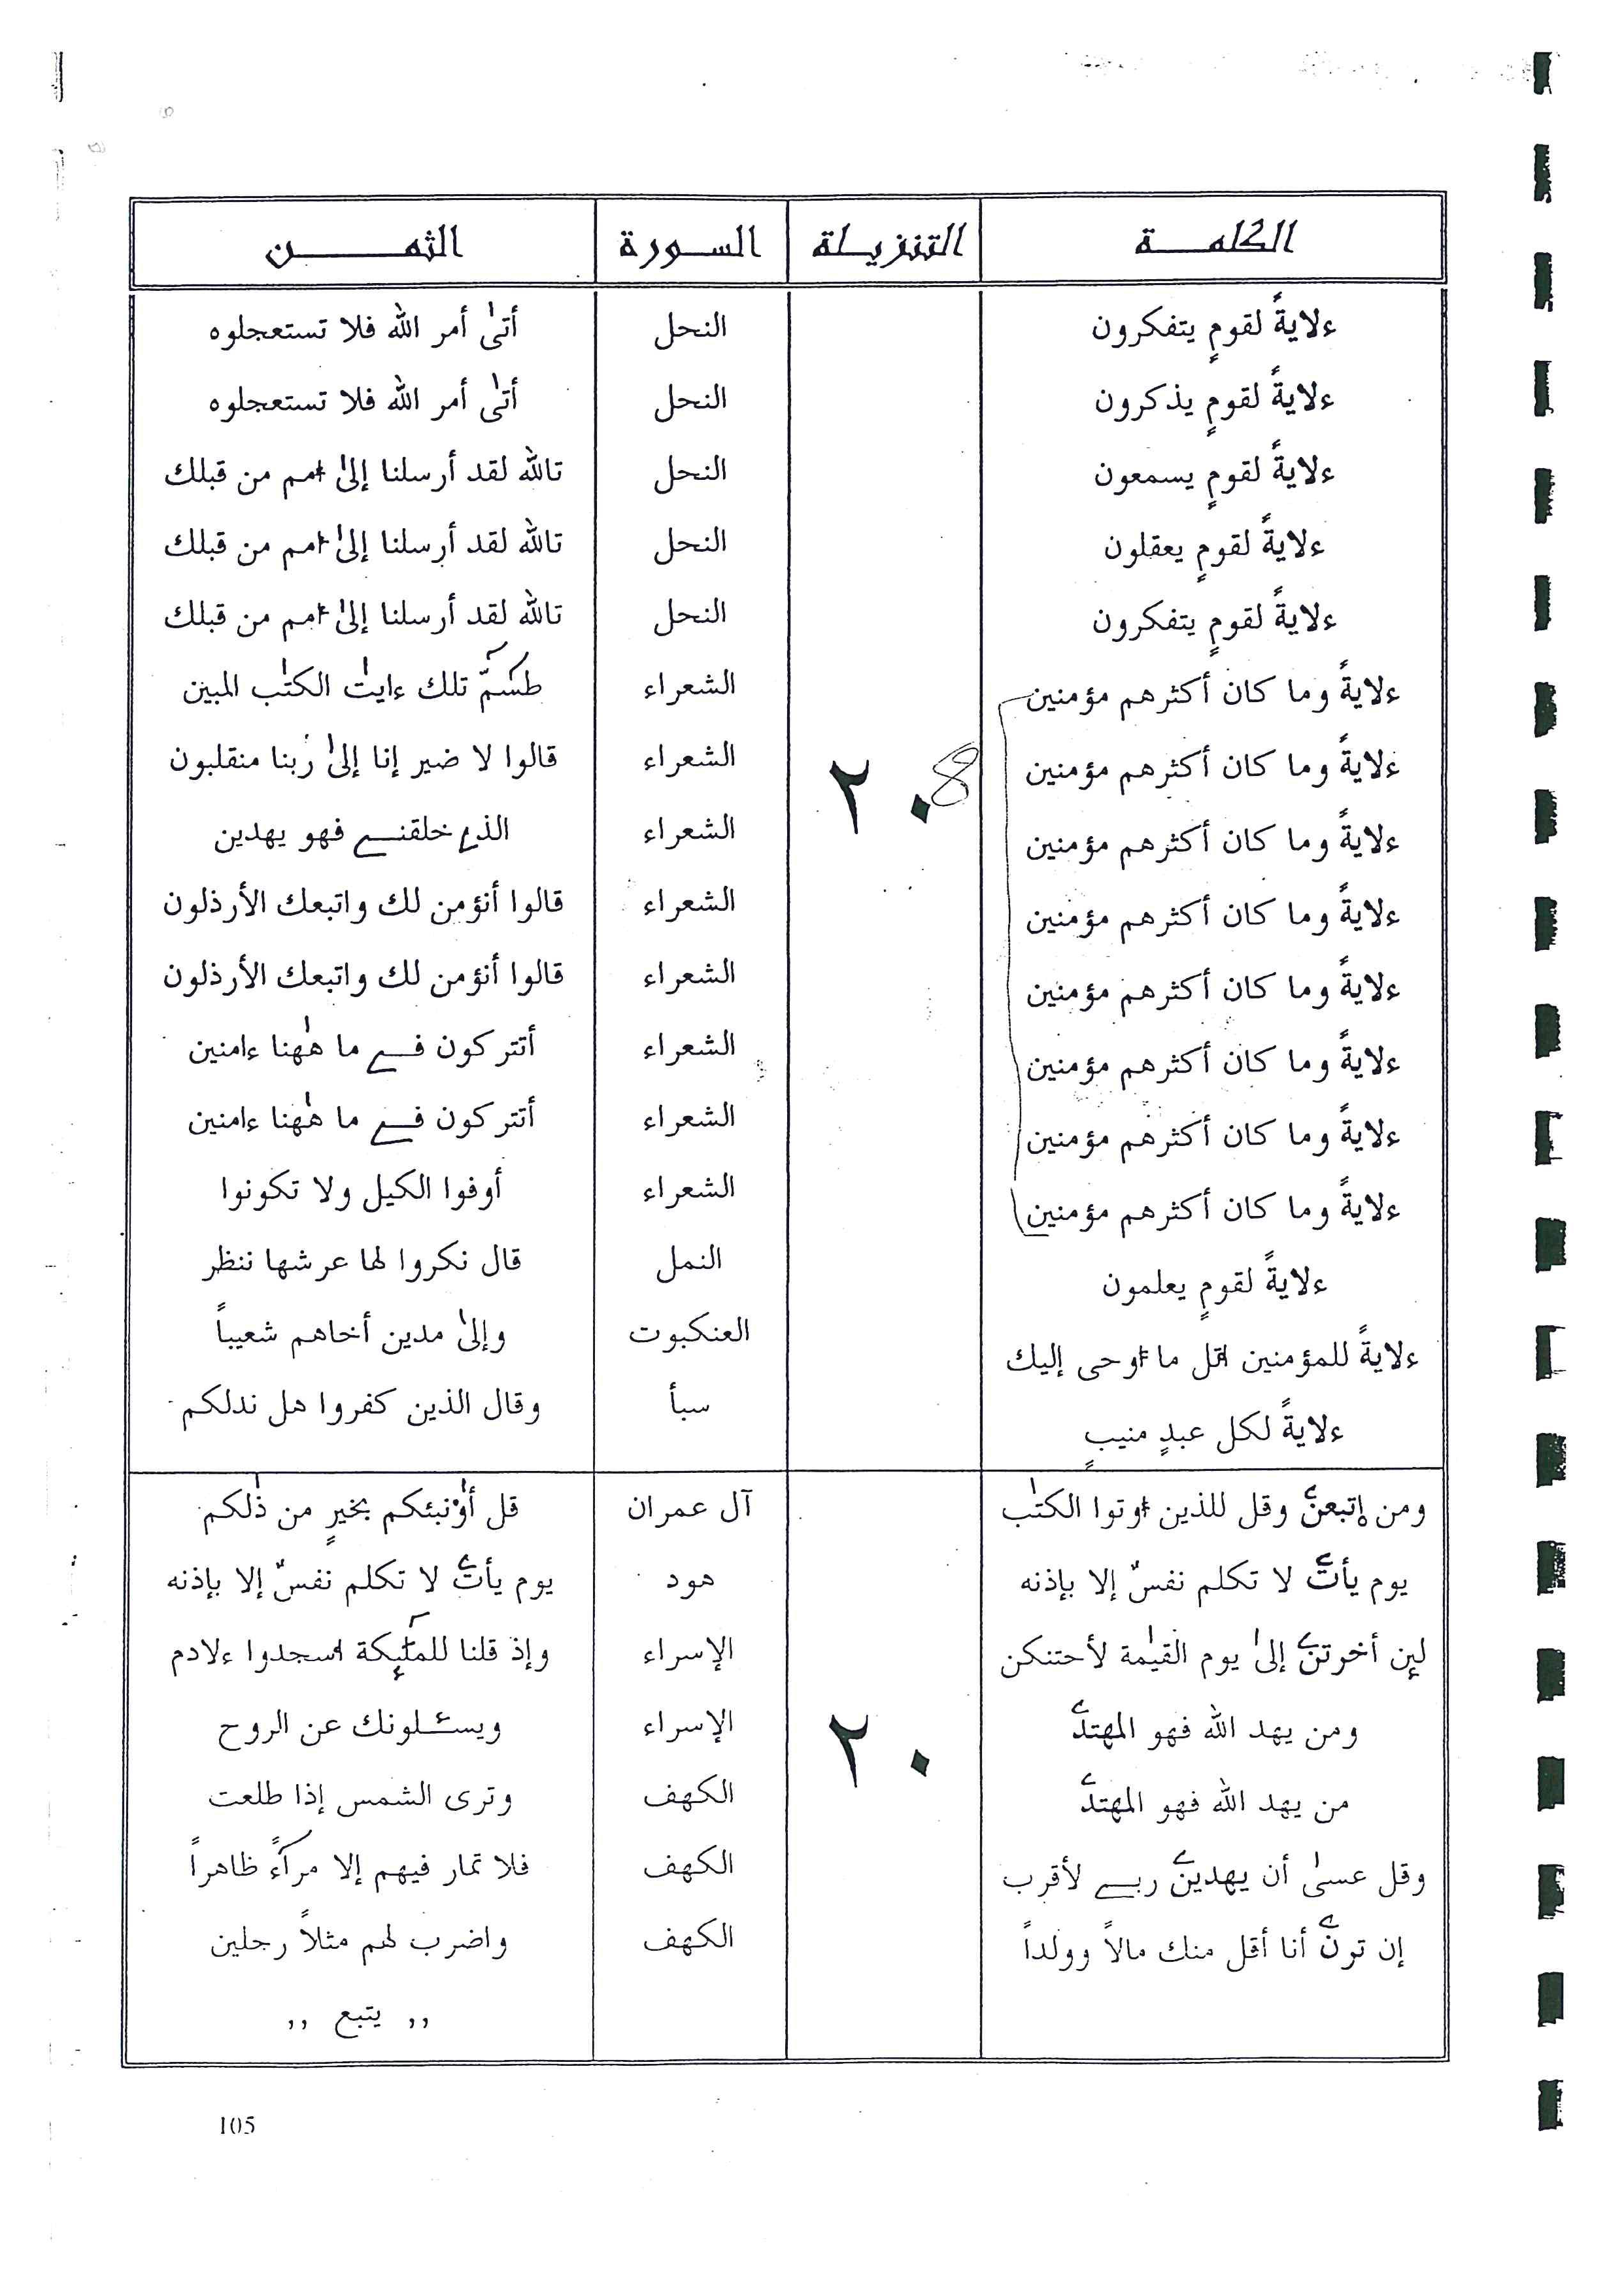 الكلمة التنزيلة السورة الثمن
ءلايةً لقومٍ يتفكرون النحل أتىٰ أمر الله فلا تستعجلوه
ءلايةً لقومٍ يذكرون النحل أتىٰ أمر الله فلا تستعجلوه
ءلايةً لقومٍ يسمعون النحل تالله لقد أرسلنا إلىٰ أمم من قبلك
ءلايةً لقومٍ يعقلون النحل تالله لقد أرسلنا إلىٰ أمم من قبلك
ءلايةً لقومٍ يتفكرون النحل تالله لقد أرسلنا إلىٰ أمم من قبلك
ءلايةً وما كان أكثرهم مؤمنين الشعراء طسٓمّ تلك ءايٰت الكتٰب المبين
ءلايةً وما كان أكثرهم مؤمنين ٢٠ 8 الشعراء قالوا لا ضير إنا إلىٰ ربنا منقلبون
ءلايةً وما كان أكثرهم مؤمنين الشعراء الذے خلقنے فهو يهدين
ءلايةً وما كان أكثرهم مؤمنين الشعراء قالوا أنؤمن لك واتبعك الأرذلون
ءلايةً وما كان أكثرهم مؤمنين الشعراء قالوا أنؤمن لك واتبعك الأرذلون
ءلايةً وما كان أكثرهم مؤمنين الشعراء أتتركون فے ما هٰهنا ءامنين
ءلايةً وما كان أكثرهم مؤمنين الشعراء أتتركون فے ما هٰهنا ءامنين
ءلايةً وما كان أكثرهم مؤمنين الشعراء أوفوا الكيل ولا تكونوا
ءلايةً لقومٍ يعلمون النمل قال نكروا لها عرشها ننظر
ءلايةً للمؤمنين اتل ما أوحى إليك العنكبوت وإلىٰ مدين أخاهم شعيباً
ءلايةً لكل عبدٍ منيبٍ سبأ وقال الذين كفروا هل ندلكم
ومن إتبعنۓ وقل للذين أوتوا الكتٰب آل عمران قل أؤنبئكم بخيرٍ من ذٰلكم
يوم يأتۓ لا تكلم نفسٌ إلا بإذنه هود يوم يأتۓ لا تكلم نفسٌ إلا بإذنه
لئن أخرتنۓ إلىٰ يوم القيٰمة لأحتنكن الإسراء وإذ قلنا للملٰٓئكة اسجدوا ءلادم
ومن يهد الله فهو المهتدۓ ٢٠ الإسراء ويسـٔلونك عن الروح
من يهد الله فهو المهتدۓ الكهف وترى الشمس إذا طلعت
وقل عسىٰ أن يهدينۓ ربے لأقرب الكهف فلا تمار فيهم إلا مرآءً ظاهراً
إن ترنۓ أنا أقل منك مالاً وولداً الكهف واضرب لهم مثلاً رجلين
,, يتبع ,,
105